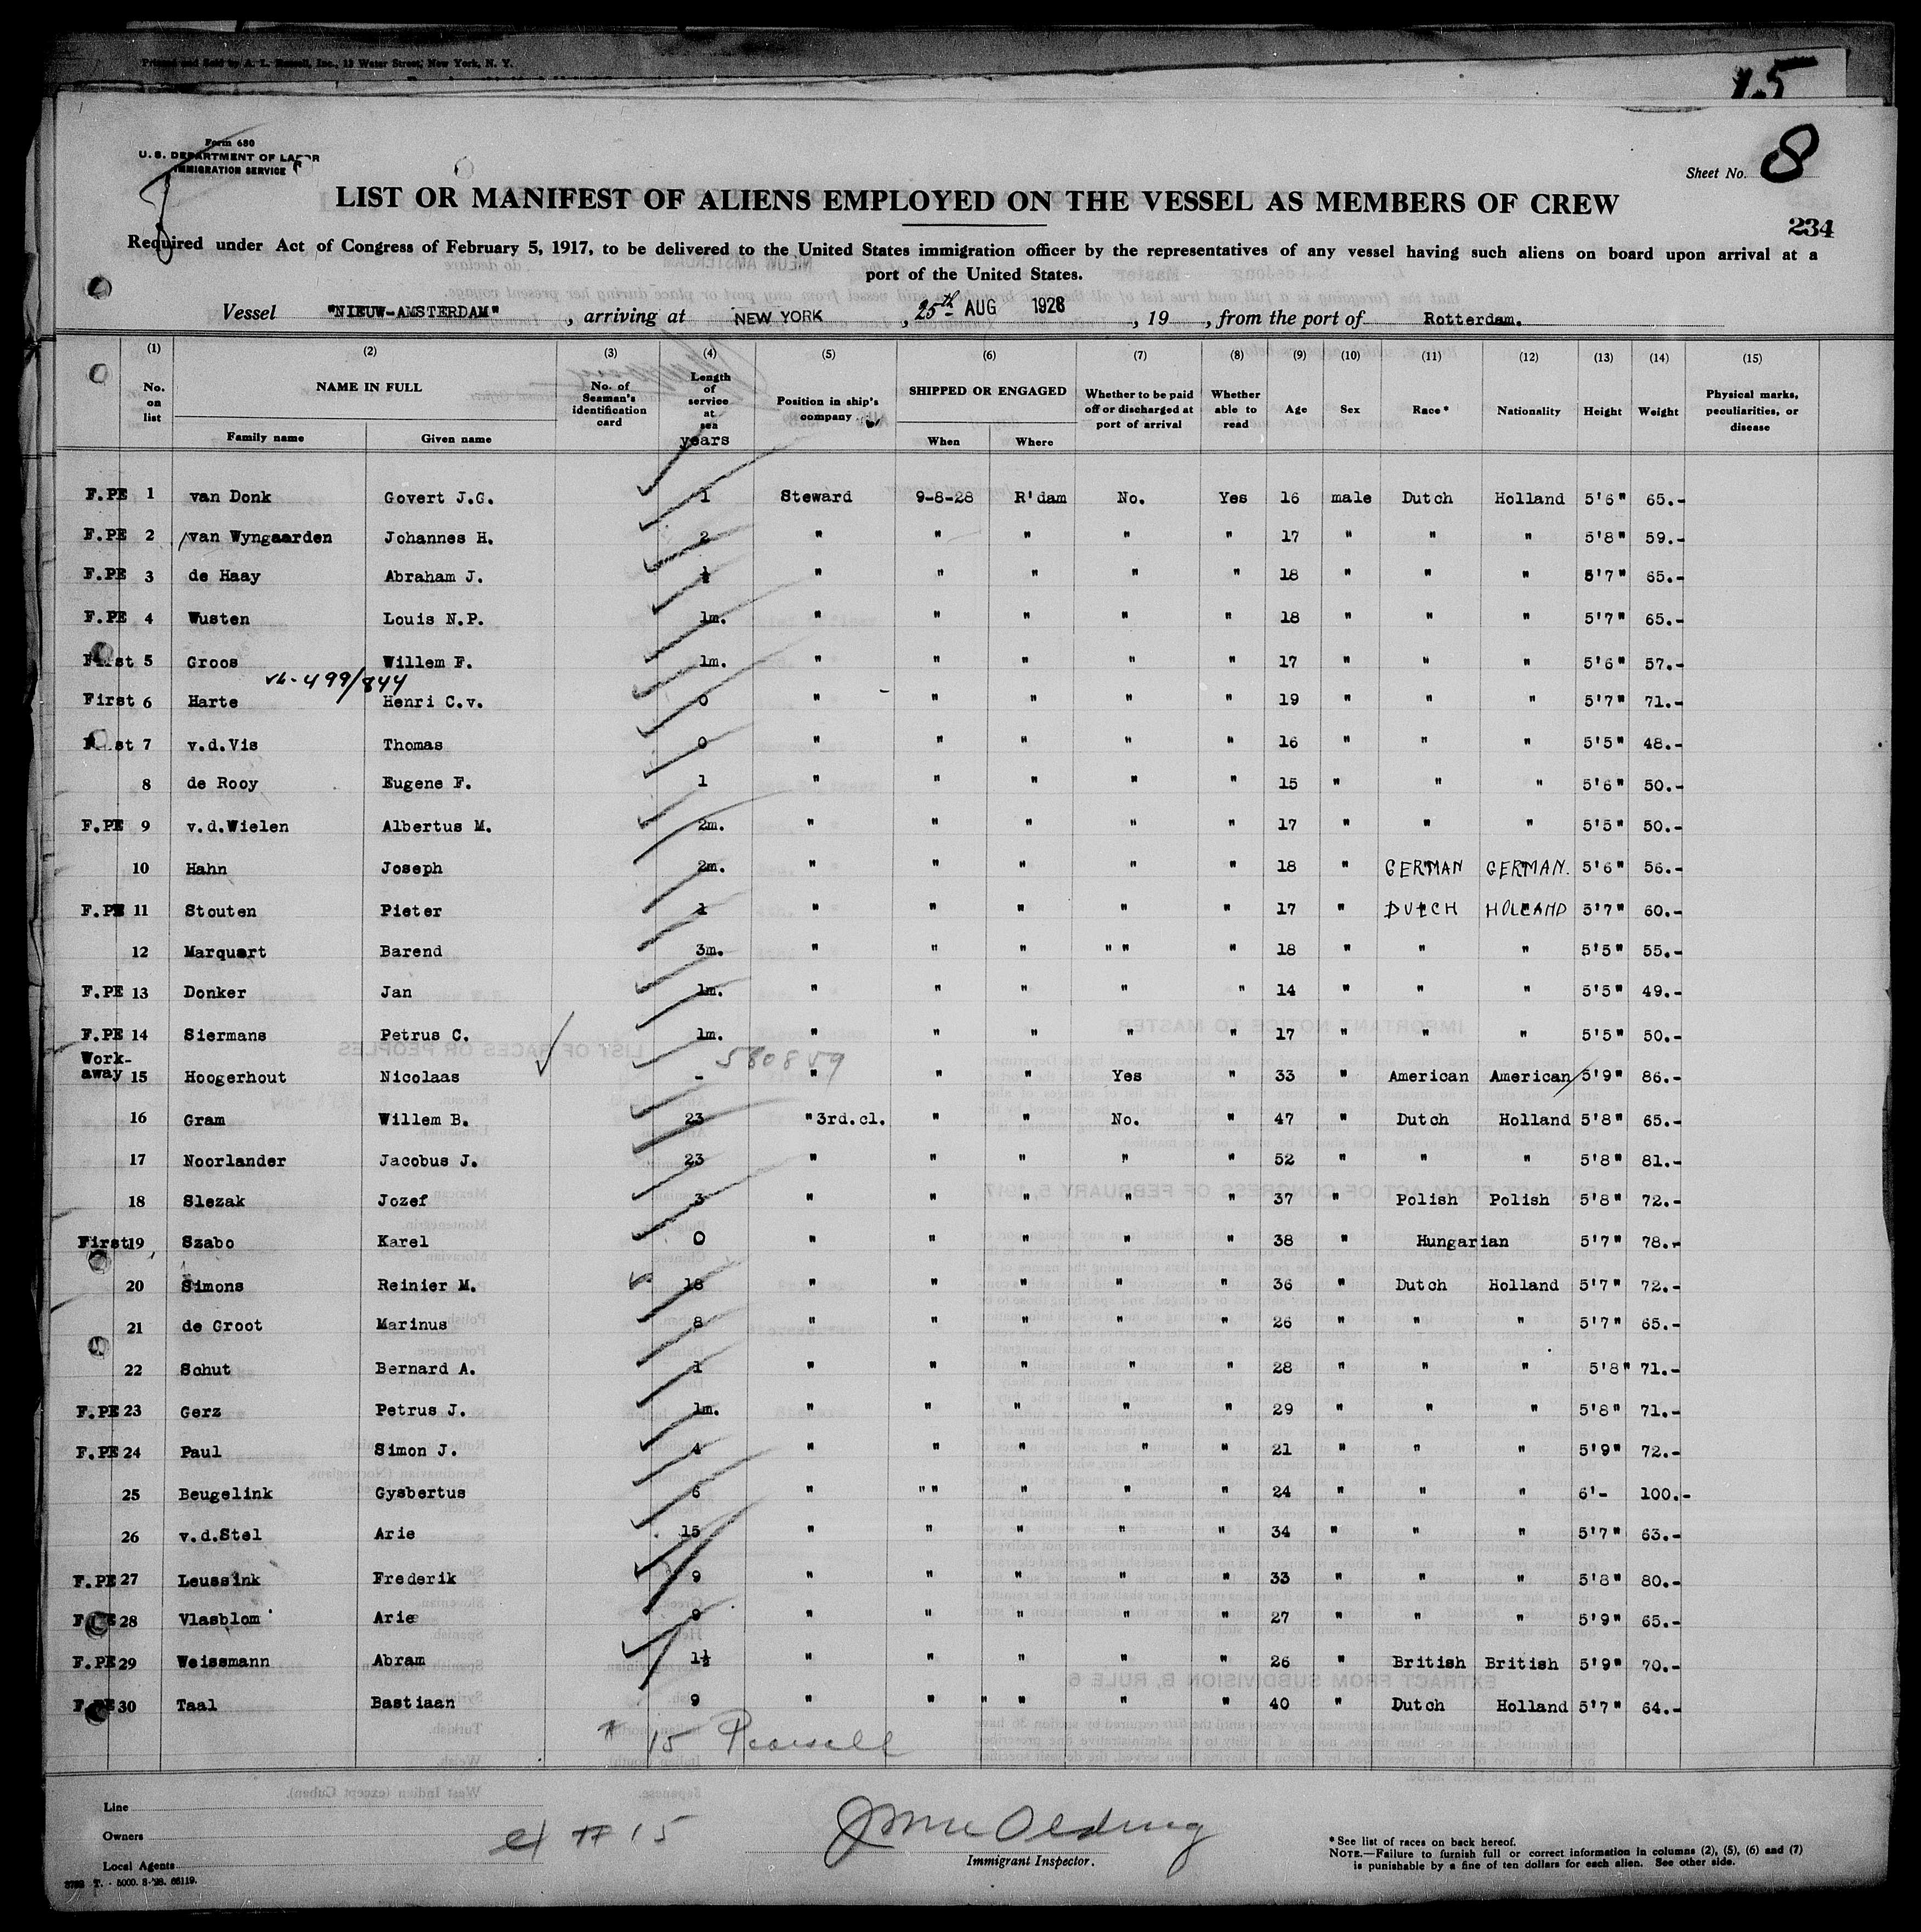 Printed and Sold by A. L. Russell, Inc., 12 Water Street, New York, N. Y.
15
Form 680
U. S. DEPARTMENT OF LABOR
IMMIGRATION SERVICE
Sheet No. 8
LIST OR MANIFEST OF ALIENS EMPLOYED ON THE VESSEL AS MEMBERS OF CREW
234
Required under Act of Congress of February 5, 1917, to be delivered to the United States immigration officer by the representatives of any vessel having such aliens on board upon arrival at a
port of the United States.
Vessel "NIEUW-AMSTERDAM", arriving at NEW YORK, 25th AUG 1928, 19 , from the port of Rotterdam.
(1) (2) (3) (4) (5) (6) (7) (8) (9) (10) (11) (12) (13) (14) (15)
No. on list NAME IN FULL Family name Given name No. of Seaman's identification card Length of service at sea years Position in ship's company SHIPPED OR ENGAGED When Where Whether to be paid off or discharged at port of arrival Whether able to read Age Sex Race* Nationality Height Weight Physical marks, peculiarities, or disease
F.PE 1 van Donk Govert J.G. 1 Steward 9-8-28 R'dam No. Yes 16 male Dutch Holland 5'6" 65.-
F.PE 2 van Wyngaarden Johannes H. 2 " " " " " 17 " " " 5'8" 59.-
F.PE 3 de Haay Abraham J. ½ " " " " " 18 " " " 5'7" 65.-
F.PE 4 Wusten Louis N.P. 1m. " " " " " 18 " " " 5'7" 65.-
First 5 Groos Willem F. 1m. " " " " " 17 " " " 5'6" 57.-
499/844
First 6 Harte Henri C.v. 0 " " " " " 19 " " " 5'7" 71.-
First 7 v.d.Vis Thomas 0 " " " " " 16 " " " 5'5" 48.-
8 de Rooy Eugene F. 1 " " " " " 15 " " " 5'6" 50.-
F.PE 9 v.d.Wielen Albertus M. 2m. " " " " " 17 " " " 5'5" 50.-
10 Hahn Joseph 2m. " " " " " 18 " GERMAN GERMAN. 5'6" 56.-
F.PE 11 Stouten Pieter 1 " " " " " 17 " DUTCH HOLLAND 5'7" 60.-
12 Marquart Barend 3m. " " " " " " 18 " " " 5'5" 55.-
F.PE 13 Donker Jan 1m. " " " " " 14 " " " 5'5" 49.-
F.PE 14 Siermans Petrus C. 1m. " " " " " 17 " " " 5'5" 50.-
580859
Work-away 15 Hoogerhout Nicolaas - " " " Yes " 33 " American American 5'9" 86.-
16 Gram Willem B. 23 " 3rd.cl. " " No. " 47 " Dutch Holland 5'8" 65.-
17 Noorlander Jacobus J. 23 " " " " " 52 " " " 5'8" 81.-
18 Slezak Jozef 3 " " " " " 37 " Polish Polish 5'8" 72.-
First 19 Szabo Karel 0 " " " " " 38 " Hungarian 5'7" 78.-
20 Simons Reinier M. 18 " " " " " 36 " Dutch Holland 5'7" 72.-
21 de Groot Marinus 8 " " " " " 26 " " " 5'7" 65.-
22 Schut Bernard A. 1 " " " " " 28 " " " 5'8" 71.-
F.PE 23 Gerz Petrus J. 1m. " " " " " 29 " " " 5'8" 71.-
F.PE 24 Paul Simon J. 4 " " " " " 21 " " " 5'9" 72.-
25 Beugelink Gysbertus 6 " " " " " " 24 " " " 6'- 100.-
26 v.d.Stel Arie 15 " " " " " 34 " " " 5'7" 63.-
F.PE 27 Leussink Frederik 9 " " " " " 33 " " " 5'8" 80.-
F.PE 28 Vlasblom Arie 9 " " " " " 27 " " " 5'9" 65.-
F.PE 29 Weissmann Abram 1½ " " " " " 26 " British British 5'9" 70.-
F.PE 30 Taal Bastiaan 9 " " " " " " 40 " Dutch Holland 5'7" 64.-
# 15
Line
Owners
# 15
Local Agents
Immigrant Inspector.
*See list of races on back hereof.
NOTE.—Failure to furnish full or correct information in columns (2), (5), (6) and (7)
is punishable by a fine of ten dollars for each alien. See other side.